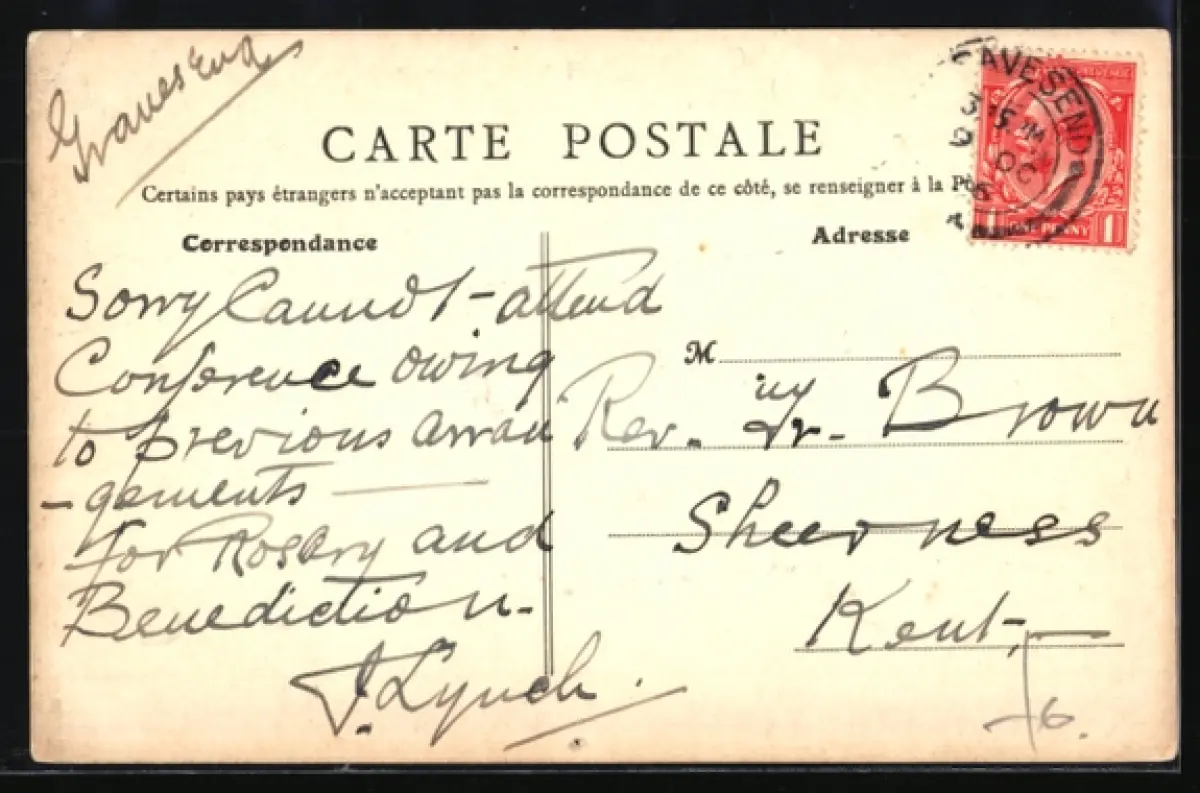 Gravesend
CARTE POSTALE
Certains pays étrangers n'acceptant pas la correspondance de ce côté, se renseigner à la
Correspondance
Adresse
AVESEND
3.15 PM
9 OC
1
PENNY
1
Sorry Cannot - attend
Conference owing
to previous arran
-gements
for Rosary and
Benediction.
J. Lynch.
M
Rev. Fr. Brown
Sheerness
Kent,
6.